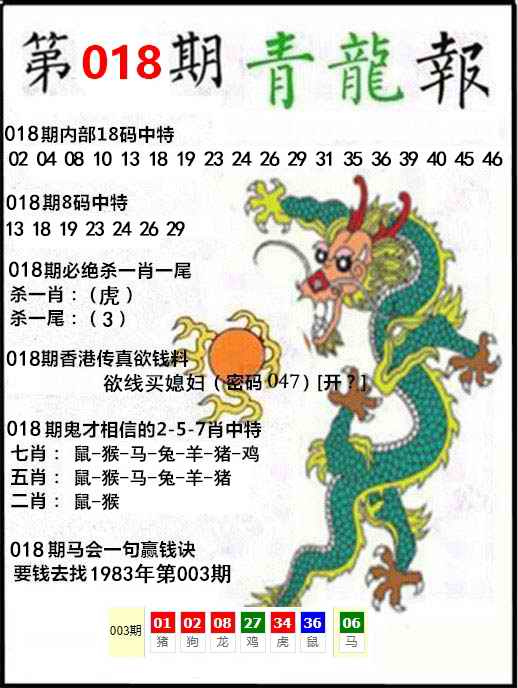 第018期 青龍報
018期内部18码中特
02 04 08 10 13 18 19 23 24 26 29 31 35 36 39 40 45 46
018期8码中特
13 18 19 23 24 26 29
018期必绝杀一肖一尾
杀一肖：（虎）
杀一尾：（3）
018期香港传真欲钱料
欲线买媳妇（密码047）[开？]
018期鬼才相信的2-5-7肖中特
七肖： 鼠-猴-马-兔-羊-猪-鸡
五肖： 鼠-猴-马-兔-羊-猪
二肖： 鼠-猴
018期马会一句赢钱诀
要钱去找1983年第003期
003期 01 02 08 27 34 36 06
猪 狗 龙 鸡 虎 鼠 马